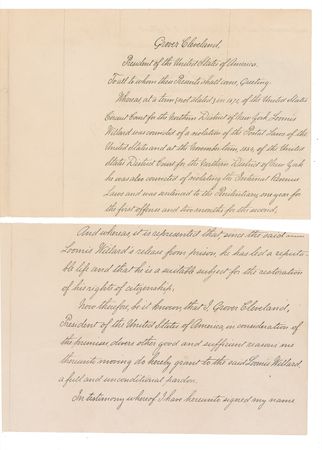 Grover Cleveland,
President of the United States of America.
To all to whom these Presents shall come, Greeting:
Whereas at a term (not stated) in 1872, of the United States
Circuit Court for the Northern District of New York, Loomis
Willard was convicted of a violation of the Postal Laws of the
United States and at the November term 1882, of the United
States District Court for the Northern District of New York
he was also convicted of violating the Internal Revenue
Laws and was sentenced to the Penitentiary one year for
the first offense and two months for the second;
And whereas, it is represented that since the said
Loomis Willard's release from prison, he has led a reputa-
ble life and that he is a suitable subject for the restoration
of his rights of citizenship;
Now therefore, be it known, that I, Grover Cleveland,
President of the United States of America, in consideration of
the premises divers other good and sufficient reasons me
thereunto moving do hereby grant to the said Loomis Willard,
a full and unconditional pardon.
In testimony whereof I have hereunto signed my name